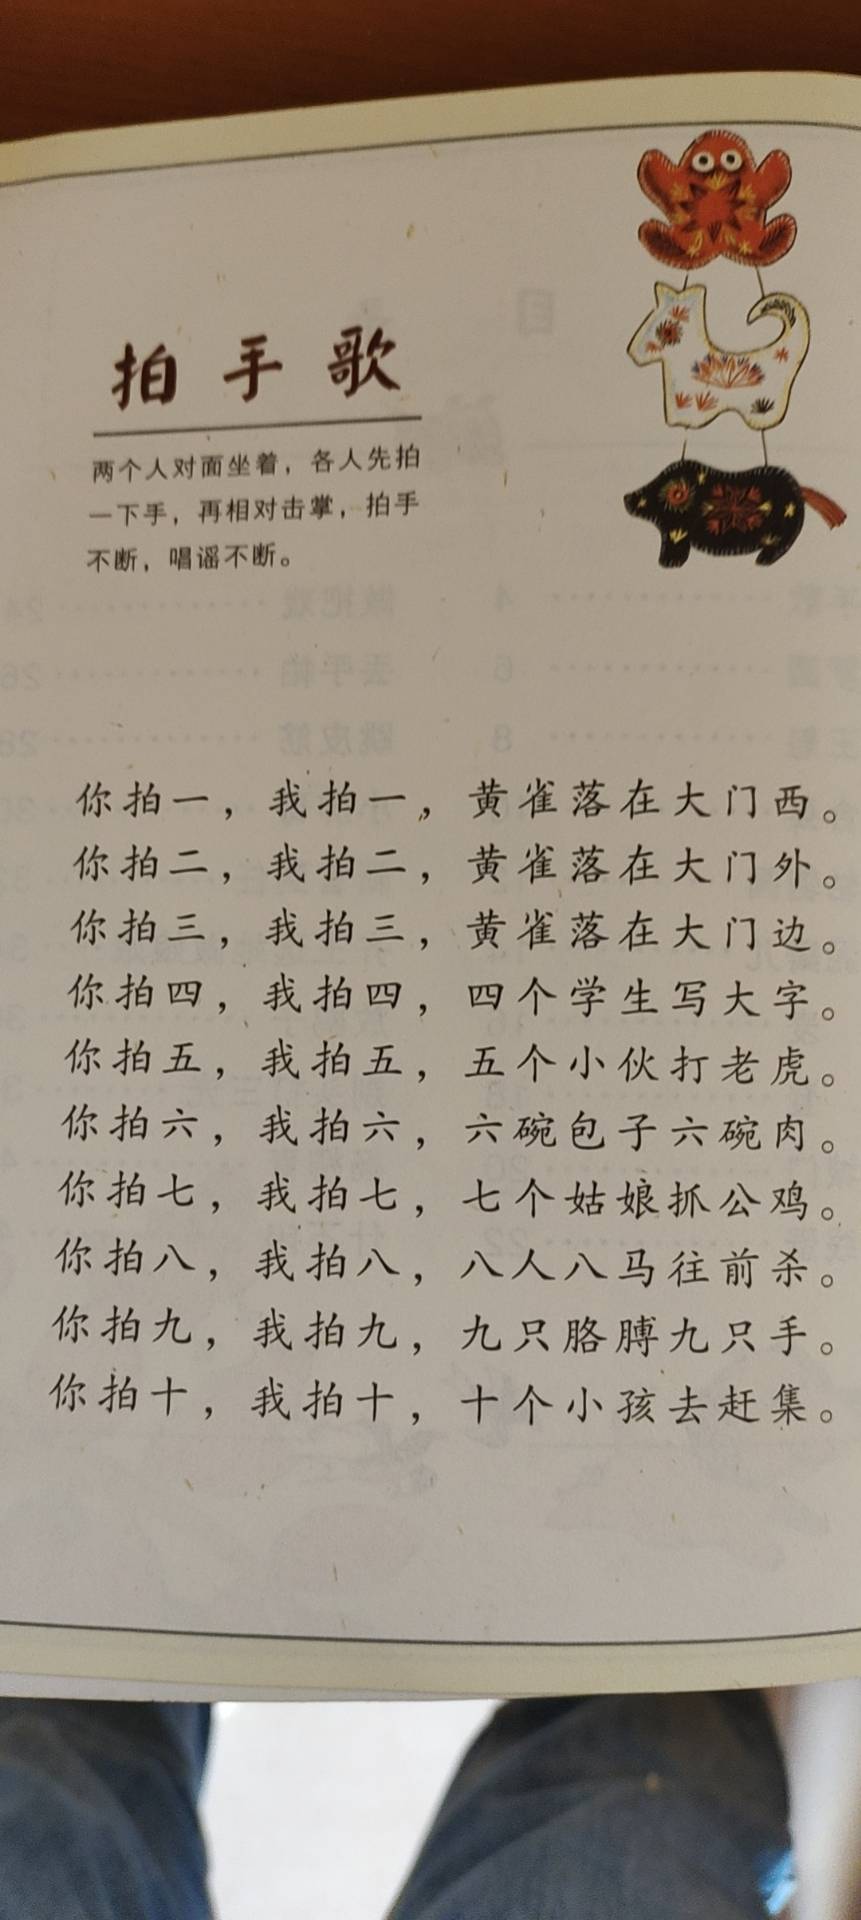 拍手歌
两个人对面坐着，各人先拍
一下手，再相对击掌，拍手
不断，唱谣不断。
你拍一，我拍一，黄雀落在大门西。
你拍二，我拍二，黄雀落在大门外。
你拍三，我拍三，黄雀落在大门边。
你拍四，我拍四，四个学生写大字。
你拍五，我拍五，五个小伙打老虎。
你拍六，我拍六，六碗包子六碗肉。
你拍七，我拍七，七个姑娘抓公鸡。
你拍八，我拍八，八人八马往前杀。
你拍九，我拍九，九只胳膊九只手。
你拍十，我拍十，十个小孩去赶集。